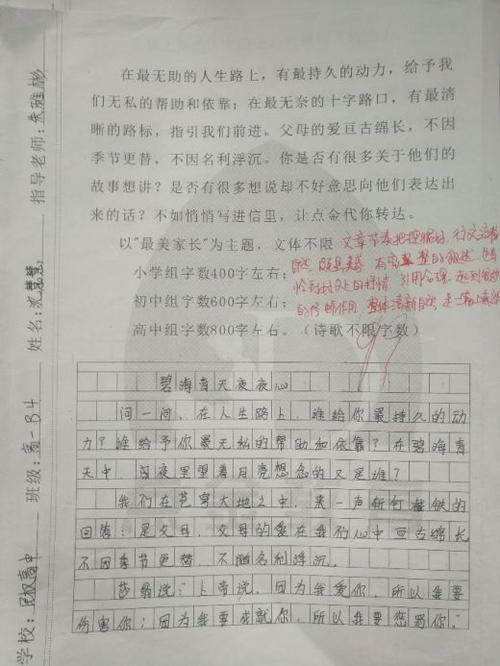 在最无助的人生路上，有最持久的动力，给予我
们无私的帮助和依靠；在最无奈的十字路口，有最清
晰的路标，指引我们前进。父母的爱亘古绵长，不因
季节更替，不因名利浮沉。你是否有很多关于他们的
故事想讲？是否有很多想说却不好意思向他们表达出
来的话？不如悄悄写进信里，让点金代你转达。
以"最美家长"为主题，文体不限
小学组字数400字左右；
初中组字数600字左右；
高中组字数800字左右。（诗歌不限字数）
文章节奏把控很好，行文流畅
自然
引用合理
整体清新自然
碧海青天夜夜心
问一问，在人生路上，谁给你最持久的动
力？谁给予你最无私的帮助和依靠？在碧海青
天中 夜里望着月亮想念的又是谁？
我们在苍穹大地之中，来一声斩钉截铁的
回答：是父母，父母的爱在我们心中亘古绵长
不因季节更替，不随名利浮沉。
莎翁说："上帝说，因为我爱你，所以我要
伤害你；因为我要成就你，所以我要惩罚你。"
学校：民权高中 班级：高一B4 姓名： 指导老师：朱雅彬